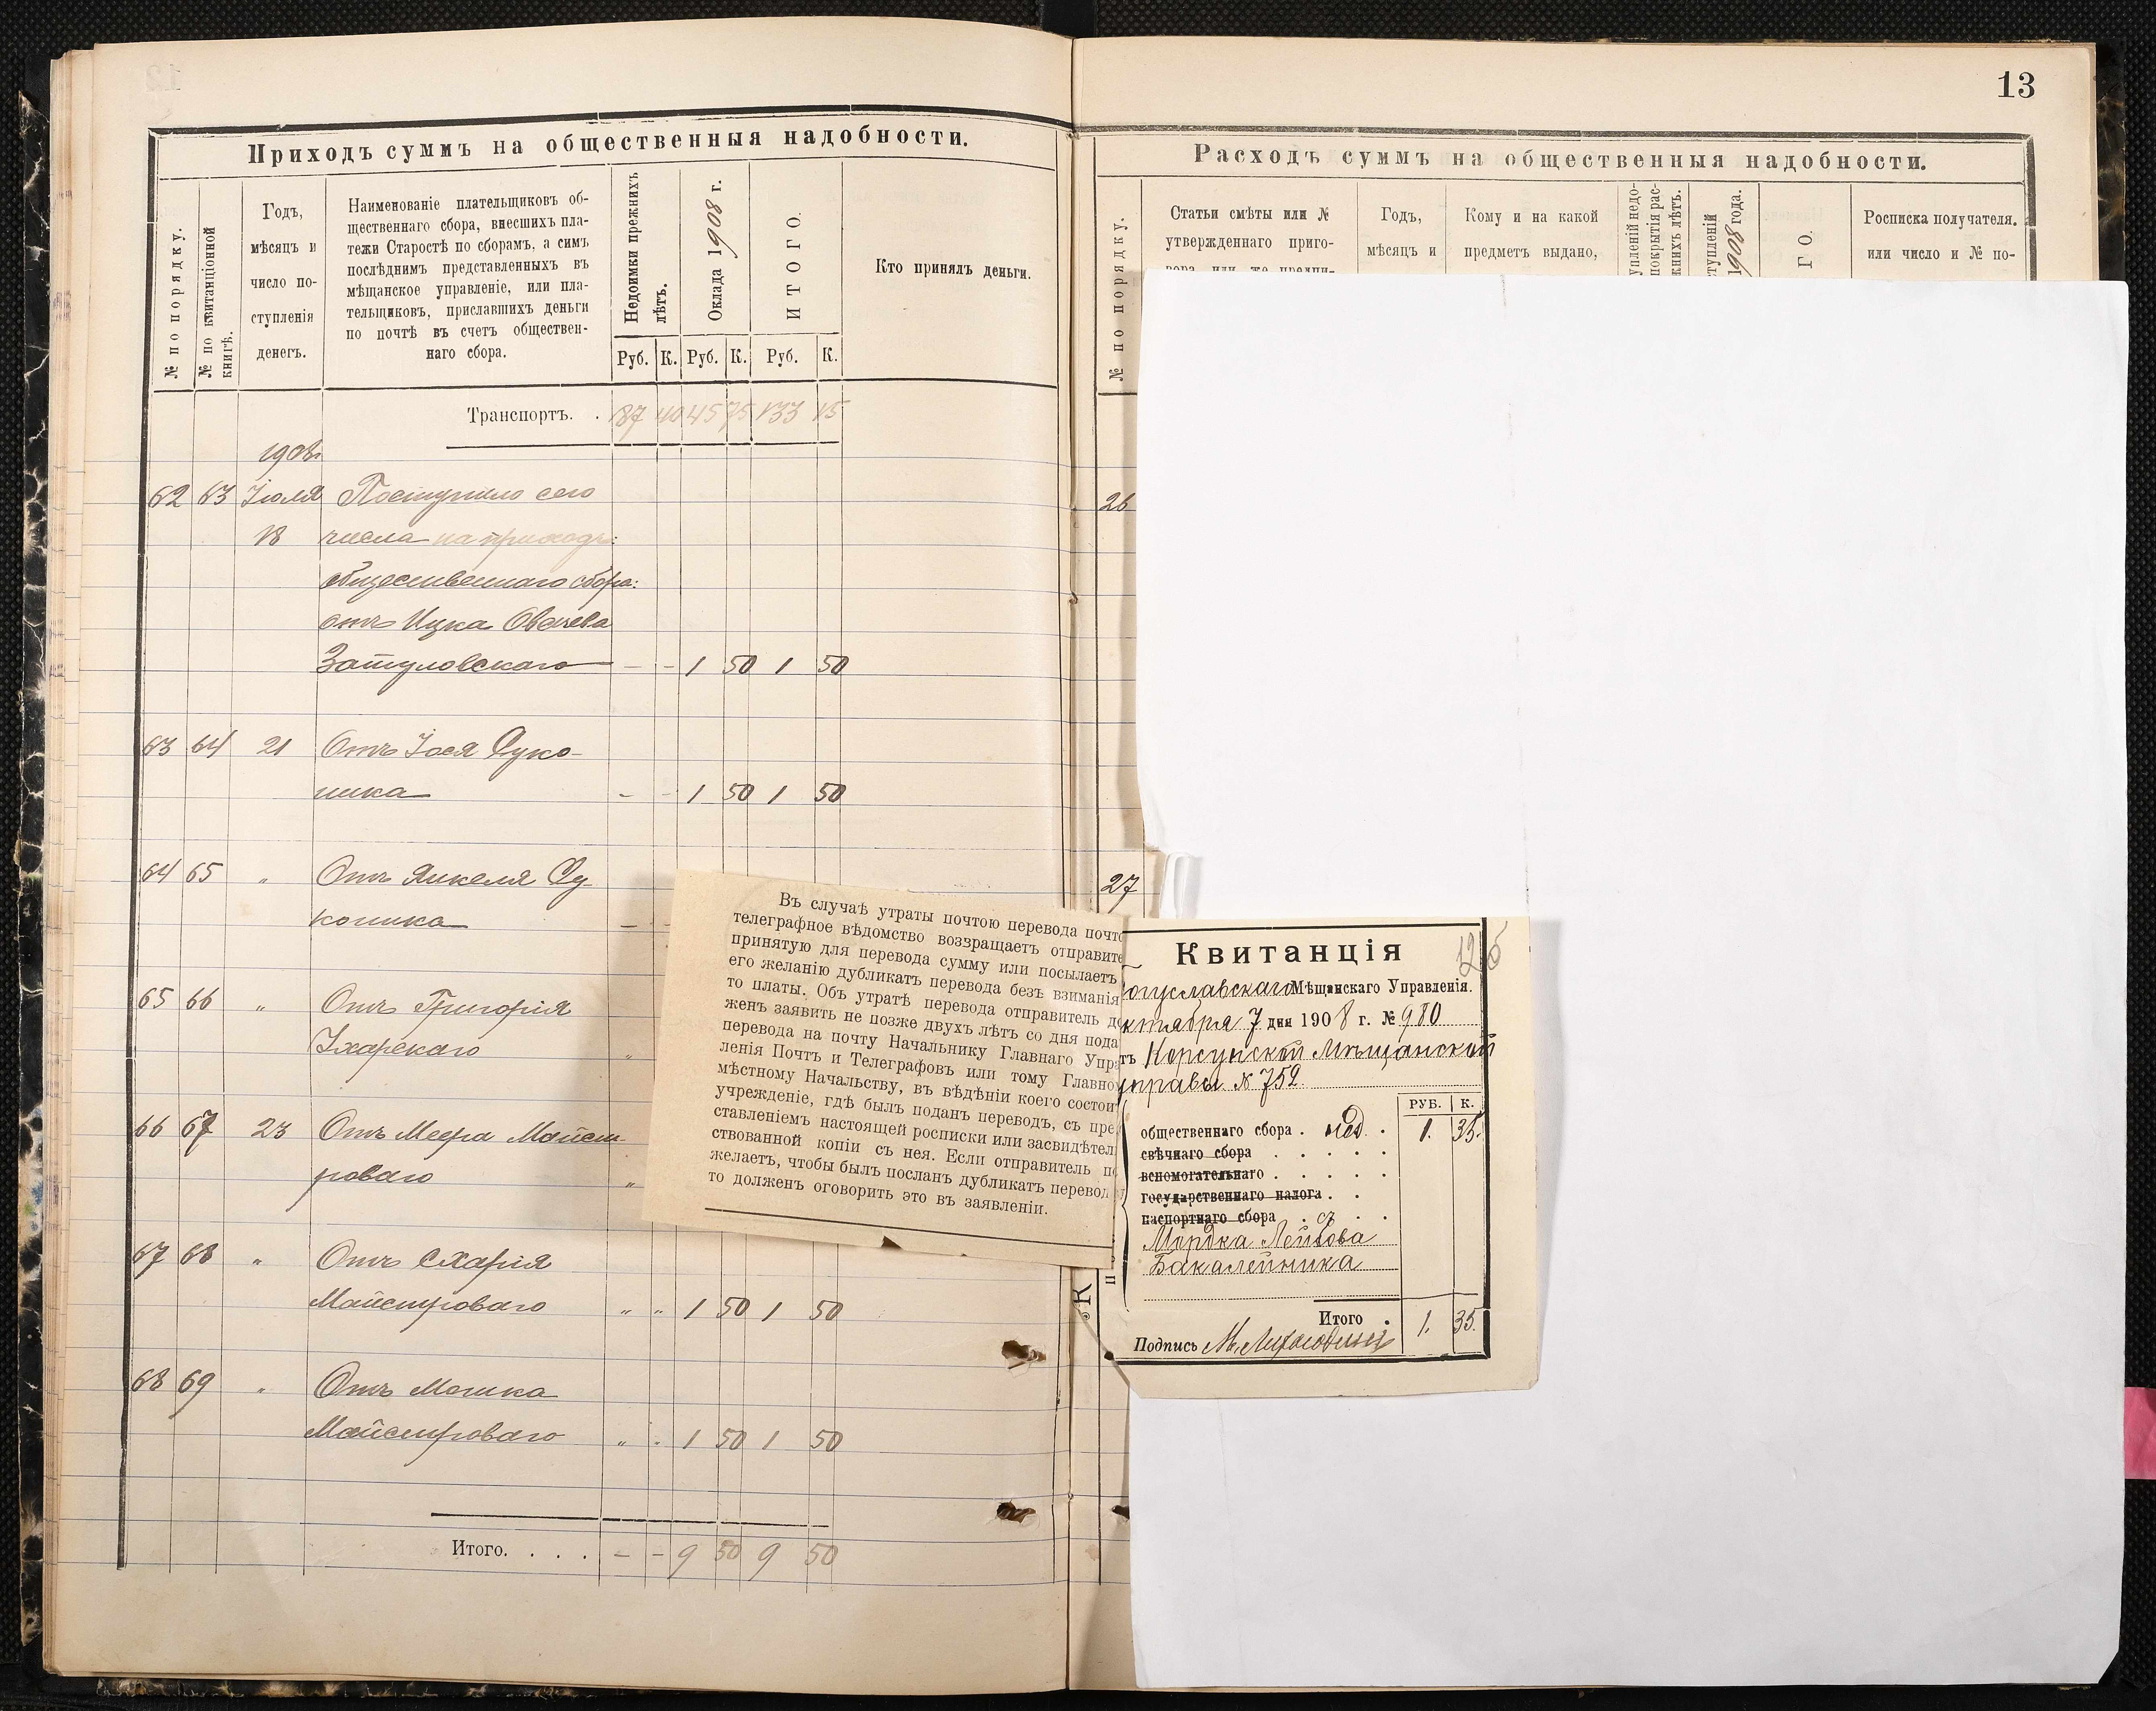 13
Приходъ суммъ на общественныя надобности.
№ по порядку.
№ по квитанціонной
книгѣ.
Годъ,
мѣсяцъ и
число по-
ступленія
денегъ.
Наименованіе плательщиковъ об-
щественнаго сбора, внесшихъ пла-
тежи Старостѣ по сборамъ, а симъ
послѣднимъ представленныхъ въ
мѣщанское управленіе, или пла-
тельщиковъ, приславшихъ деньги
по почтѣ въ счетъ обществен-
наго сбора.
Недоимки прежнихъ
лѣтъ.
Оклада 1908 г.
ИТОГО.
Руб. К. Руб. К. Руб. К.
Кто принялъ деньги.
Транспортъ. . 87 40 45 75 133 15
1908г
62 63 Іюля Поступило сего
18 числа на приходъ:
общественнаго сбора:
отъ Ицка Овшева
Затуловскаго — - - 1 50 1 50
63 64 21 Отъ Іося Суко-
ника — - - 1 50 1 50
64 65 „ Отъ Янкеля Су-
коника — -
65 66 „ Отъ Григорія
„
66 67 23 Отъ Меера Майст-
роваго „
67 68 „ Отъ Схарія
Майстроваго „ „ 1 50 1 50
68 69 „ Отъ Мошка
Майстроваго „ „ 1 50 1 50
Итого. . . . - - 9 50 9 50
Въ случаѣ утраты почтою перевода почто
телеграфное вѣдомство возвращаетъ отправите
принятую для перевода сумму или посылаетъ
его желанію дубликатъ перевода безъ взиманія
то платы. Объ утратѣ перевода отправитель до
женъ заявить не позже двухъ лѣтъ со дня пода
перевода на почту Начальнику Главнаго Упра
ленія Почтъ и Телеграфовъ или тому Главно
мѣстному Начальству, въ вѣдѣніи коего состои
учрежденіе, гдѣ былъ поданъ переводъ, съ пре
ставленіемъ настоящей росписки или засвидѣтел
ствованной копіи съ нея. Если отправитель по
желаетъ, чтобы былъ посланъ дубликатъ перевод
то долженъ оговорить это въ заявленіи.
Расходъ суммъ на общественныя надобности.
№ по порядку.
Статьи смѣты или №
утвержденнаго приго-
вора, или же предпи-
Годъ,
мѣсяцъ и
Кому и на какой
предметъ выдано,
упленій недо-
покрытія рас-
жнихъ лѣтъ.
тупленій
1908 года.
ГО.
Росписка получателя,
или число и № по-
26
27
Квитанція
125
огуславскаго Мѣщанскаго Управленія.
ктября 7 дня 1908 г. № 980
тъ Корсунской Мѣщанской
управы № 752
РУБ. К.
общественнаго сбора . нед. . 1. 35.
свѣчнаго сбора . . . . .
вспомогательнаго . . . . .
государственнаго налога . .
паспортнаго сбора . съ . .
Мордка Лейбова
Бакалейника
Итого . 1. 35.
Подпись